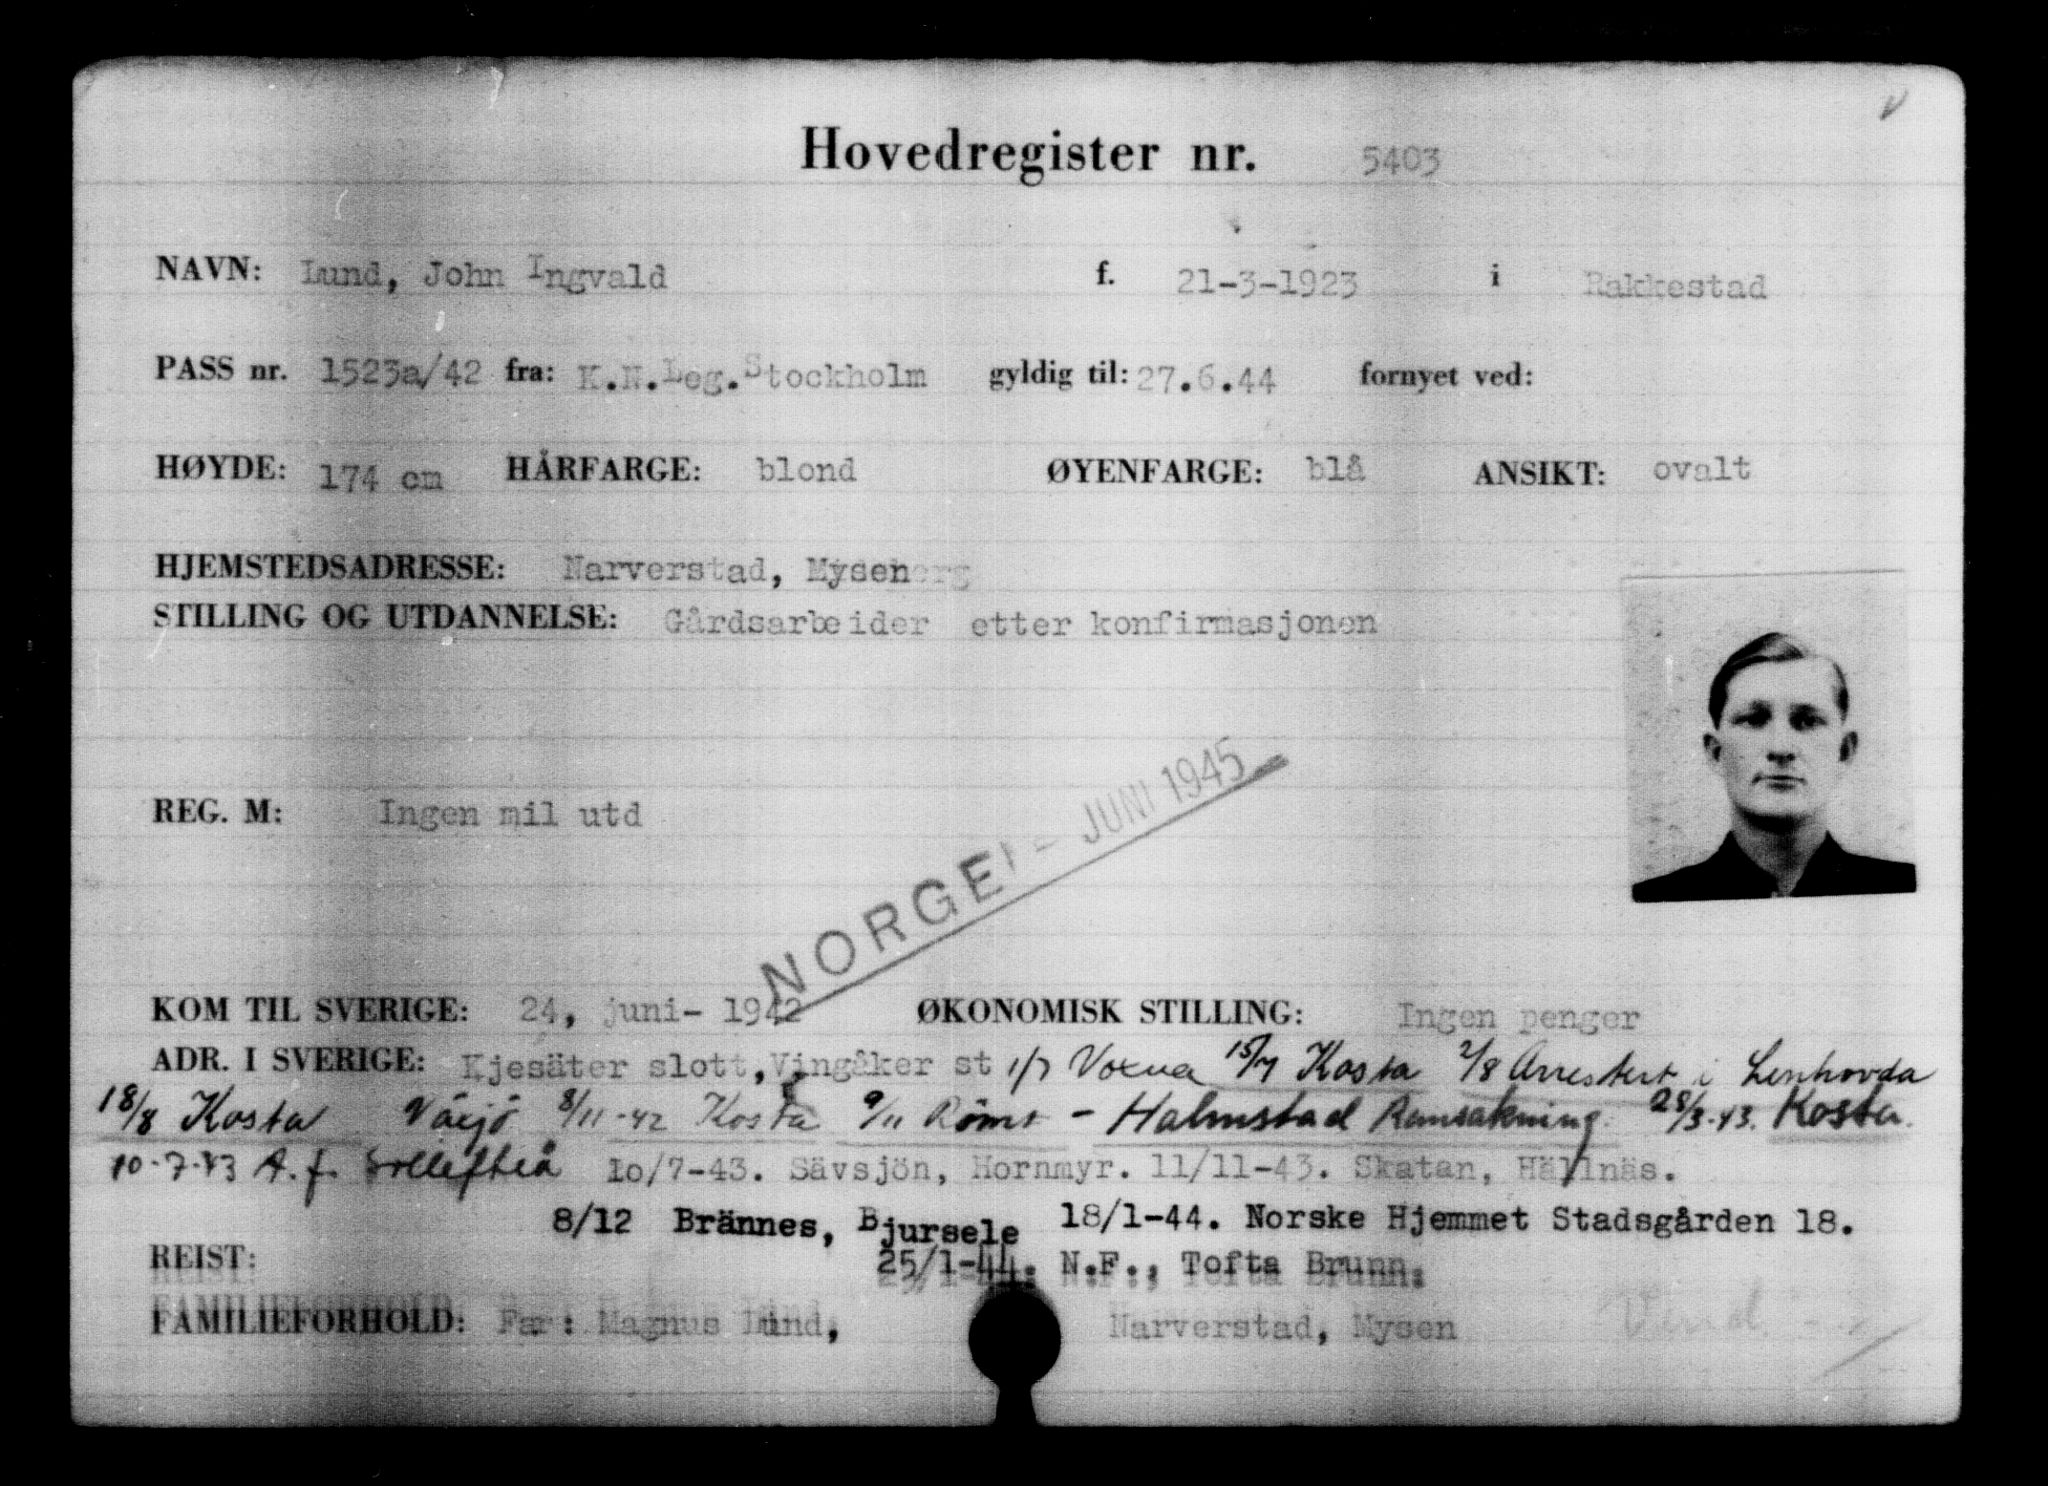 Hovedregister nr. 5403
NAVN: Lund, John Ingvald f. 21-3-1923 i Rakkestad
PASS nr. 1523a/42 fra: K.N.Leg.Stockholm gyldig til: 27.6.44 fornyet ved:
HØYDE: 174 cm HÅRFARGE: blond ØYENFARGE: blå ANSIKT: ovalt
HJEMSTEDSADRESSE: Narverstad, Mysen
STILLING OG UTDANNELSE: Gårdsarbeider etter konfirmasjonen
REG. M: Ingen mil utd
NORGE - JUNI 1945
KOM TIL SVERIGE: 24, juni- 1942 ØKONOMISK STILLING: Ingen penger
ADR. I SVERIGE: Kjesäter slott, Vingåker st 1/7 Voxna 15/7 Kosta 2/8 Arrestert i Lenhovda
18/8 Kosta Växjö 8/11-42 Kosta 9/11 Römt - Halmstad Ransakning 28/3-43. Kosta.
10-7-43 A.f. Sollefteå 10/7-43. Sävsjön, Hornmyr. 11/11-43. Skatan, Hällnäs.
8/12 Brännes, Bjursele 18/1-44. Norske Hjemmet Stadsgården 18.
REIST: 25/1-44. N.F., Tofta Brunn.
FAMILIEFORHOLD: Far: Magnus Lund, Narverstad, Mysen Vend